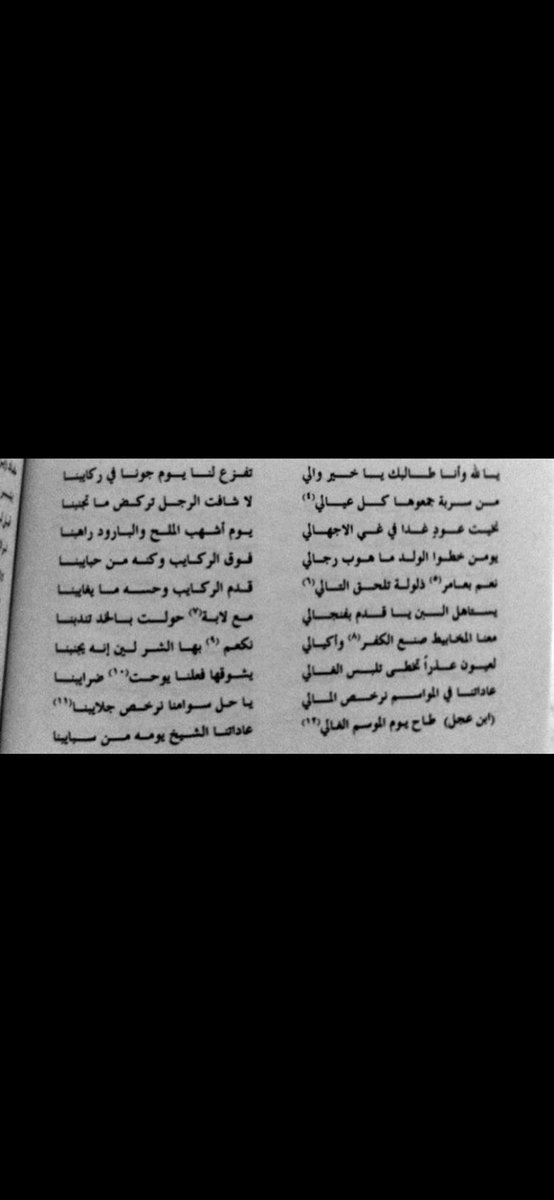 يا لله وأنا طالبك يا خير والي تفزع لنا يوم جونا في ركايبنا
من سربة جمعوها كل عيالي(٤) لا شافت الرجل تركض ما تجنبنا
نخيت عودٍ غدا في غي الاجهالي يوم أشهب الملح والبارود راهبنا
يومن خطوا الولد ما هوب رجالي فوق الركايب وكنه من حبايبنا
نعم بعامر(٥) ذلولة تلحق التالي(٦) قدم الركايب وحسه ما يغايبنا
يستاهل البن يا قدم بفنجالي مع لابة(٧) حولت بالحد تندبنا
معنا المخابيط صنع الكفر(٨) وأكيالي نكعم(٩) بها الشر لين إنه يجنبنا
لعيون عذراً تخطى تلبس الغالي يشوقها فعلنا يوحت(١٠) ضرايبنا
عاداتنا في المواسم نرخص المالي يا حل سوامنا نرخص جلايبنا(١١)
(ابن عجل) طاح يوم الموسم الغالي(١٢) عاداتنا الشيخ يومه من سبايبنا